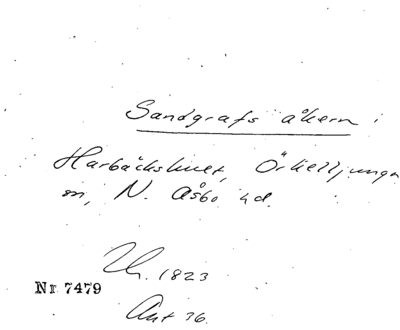 Sandgrafs åkern i
Harbäckshult, Örkelljunga
sn, N. Åsbo hd.
Th. 1823
Nr 7479
Akt 36.